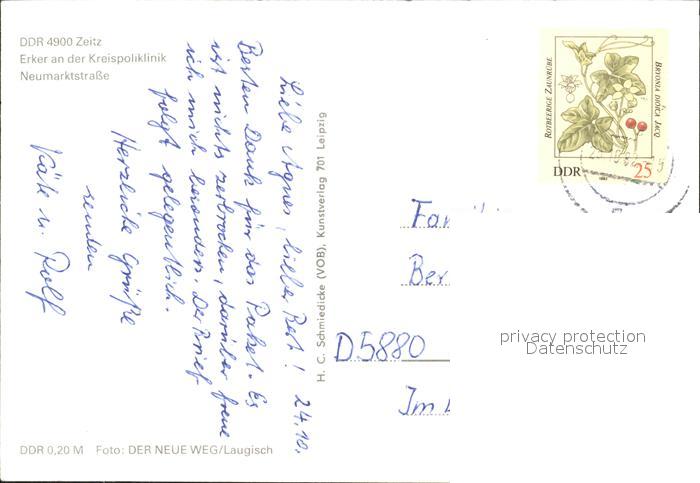 DDR 4900 Zeitz
Erker an der Kreispoliklinik
Neumarktstraße
Liebe Agnes, lieber Bert! 24.10.
Besten Dank für das Paket. Es
ist nichts zerbrochen, darüber freue
ich mich besonders. Der Brief
folgt gelegentlich.
Herzliche Grüße
senden
Käte u. Rolf
DDR 0,20 M Foto: DER NEUE WEG/Laugisch
H. C. Schmiedicke (VOB), Kunstverlag 701 Leipzig
ROTBEERIGE ZAUNRÜBE
BRYONIA DIOICA JACQ.
DDR 25
Fam
Ber
D5880
Im
privacy protection
Datenschutz